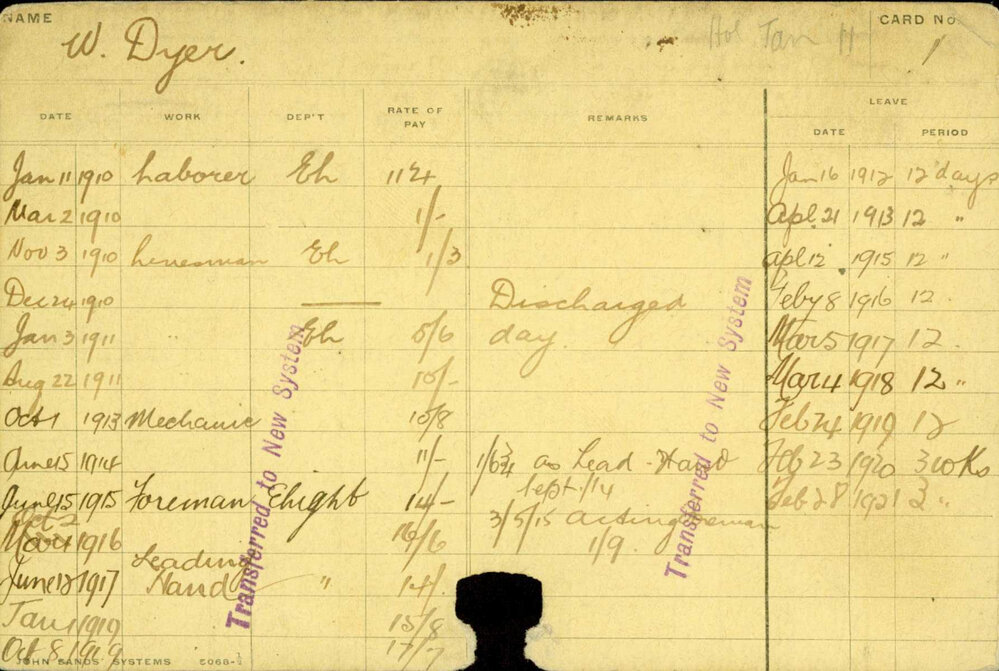 NAME
CARD No
W. Dyer.
1
Hol Jan 11
DATE WORK DEP'T RATE OF PAY REMARKS LEAVE
DATE PERIOD
Jan 11 1910 Laborer Eh Jan 16 1912 12 days
Mar 2 1910 1/- Apl 21 1913 12 "
Nov 3 1910 Linesman Eh 1/3 Apl 12 1915 12 "
Dec 24 1910 Discharged Feby 8 1916 12
Jan 3 1911 " Eh day. Mar 5 1917 12
Aug 22 1911 10/- Mar 4 1918 12 "
Oct 1 1913 Mechanic 10/8 Feb 24 1919 12
June 15 1914 11/- as Lead-Hand Feb 23 1920 3 wks
Sept./14
June 15 1915 Foreman Elight 14- Feb 28 1921 3 "
3/5/15 Acting foreman
Oct 2
1916 1/9.
Leading
June 1917 Hand " 14/.
Jan 1 1919 15/8
Oct 8 1919 17/7
Transferred to New System
Transferred to New System
JOHN SANDS' SYSTEMS 5068-½